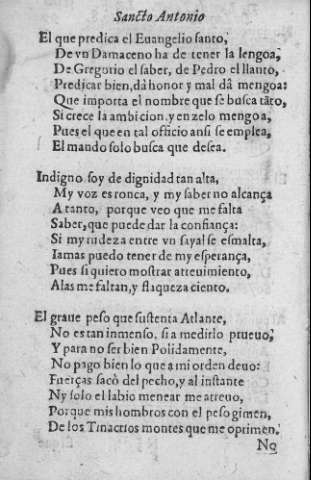 Sancto Antonio
El que predica el Euangelio santo,
De vn Damaceno ha de tener la lengoa,
De Gregorio el saber, de Pedro el llanto,
Predicar bien, dâ honor y mal dâ mengoa:
Que importa el nombre que se busca tãto,
Si crece la ambicion, y en zelo mengoa,
Pues el que en tal officio ansi se emplea,
El mando solo busca que desea.
Indigno soy de dignidad tan alta,
My voz es ronca, y my saber no alcança
A tanto, porque veo que me falta
Saber, que puede dar la confiança:
Si my rudeza entre vn sayal se esmalta,
Iamas puedo tener de my esperança,
Pues si quiero mostrar atreuimiento,
Alas me faltan, y flaqueza ciento.
El graue peso que sustenta Atlante,
No es tan inmenso, si a medirlo prueuo,
Y para no ser bien Polidamente,
No pago bien lo que a mi orden deuo:
Fuerças sacò del pecho, y al instante
Ny solo el labio menear me atreuo,
Porque mis hombros con el peso gimen,
De los Tinacrios montes que me oprimen.
No